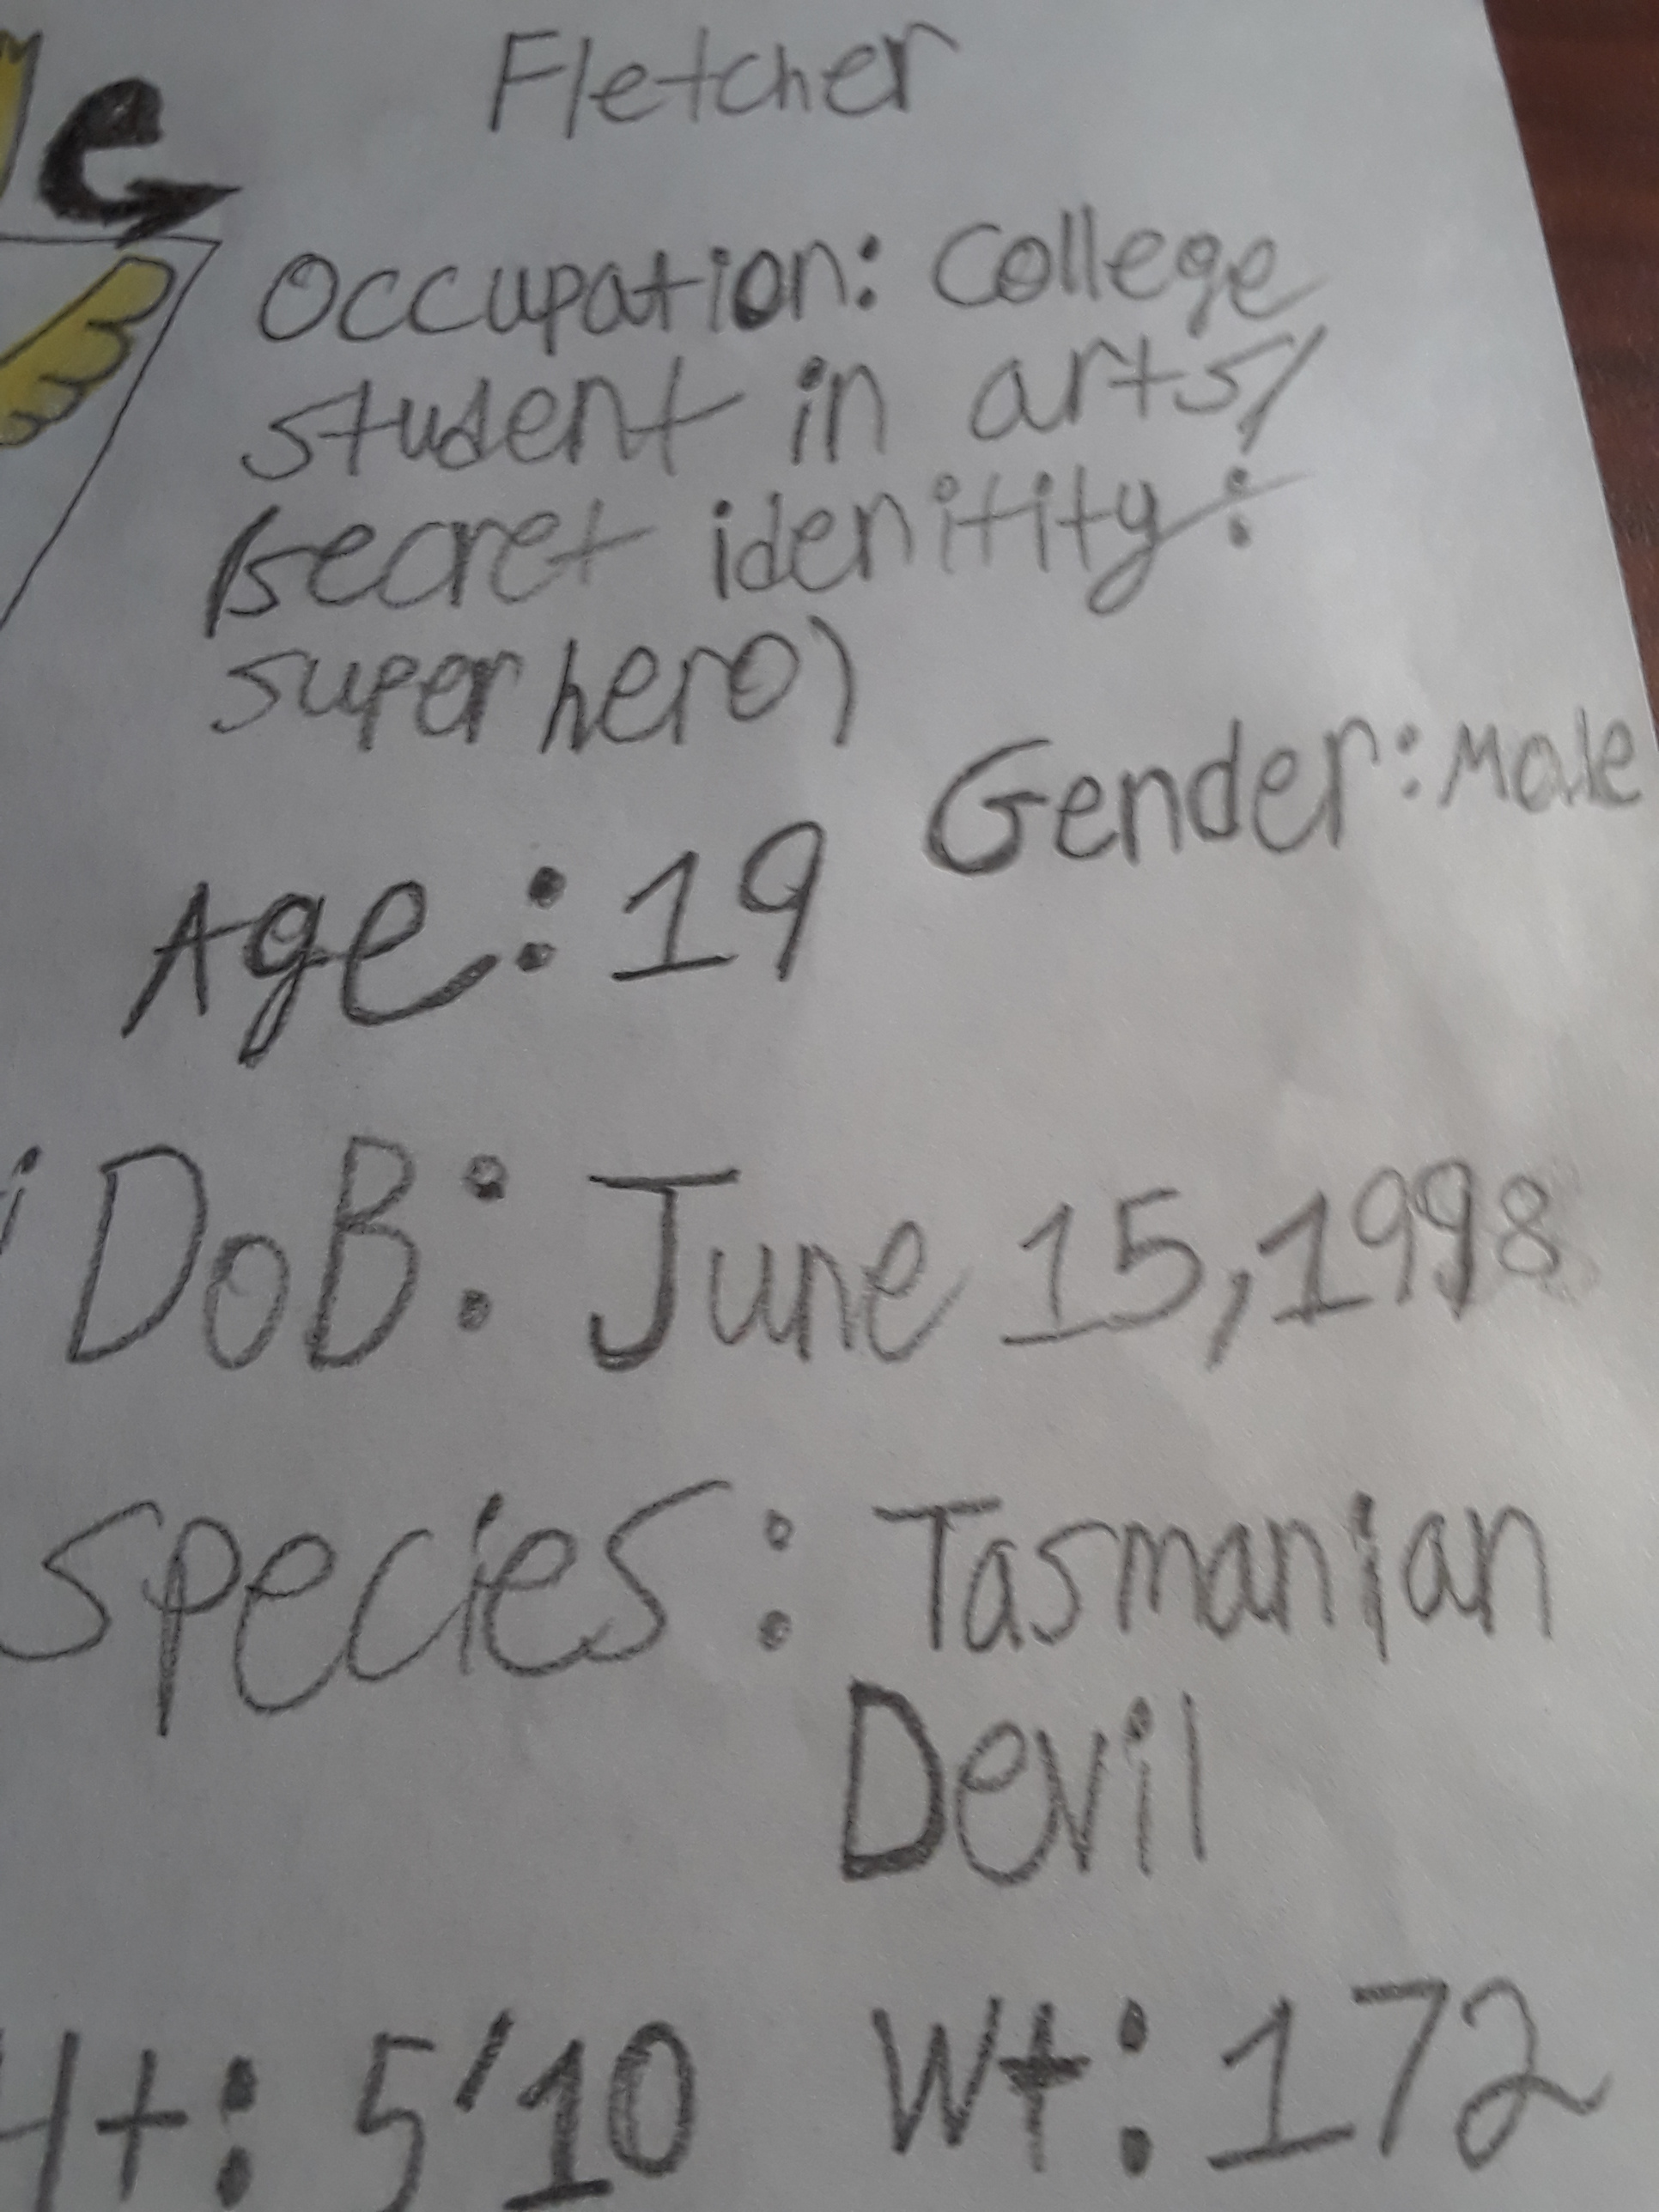 Fletcher
e
Occupation: College
student in arts/
(secret identitity:
superhero)
Gender: Male
Age: 19
DoB: June 15, 1998
Species: Tasmanian
Devil
Ht: 5'10 Wt: 172